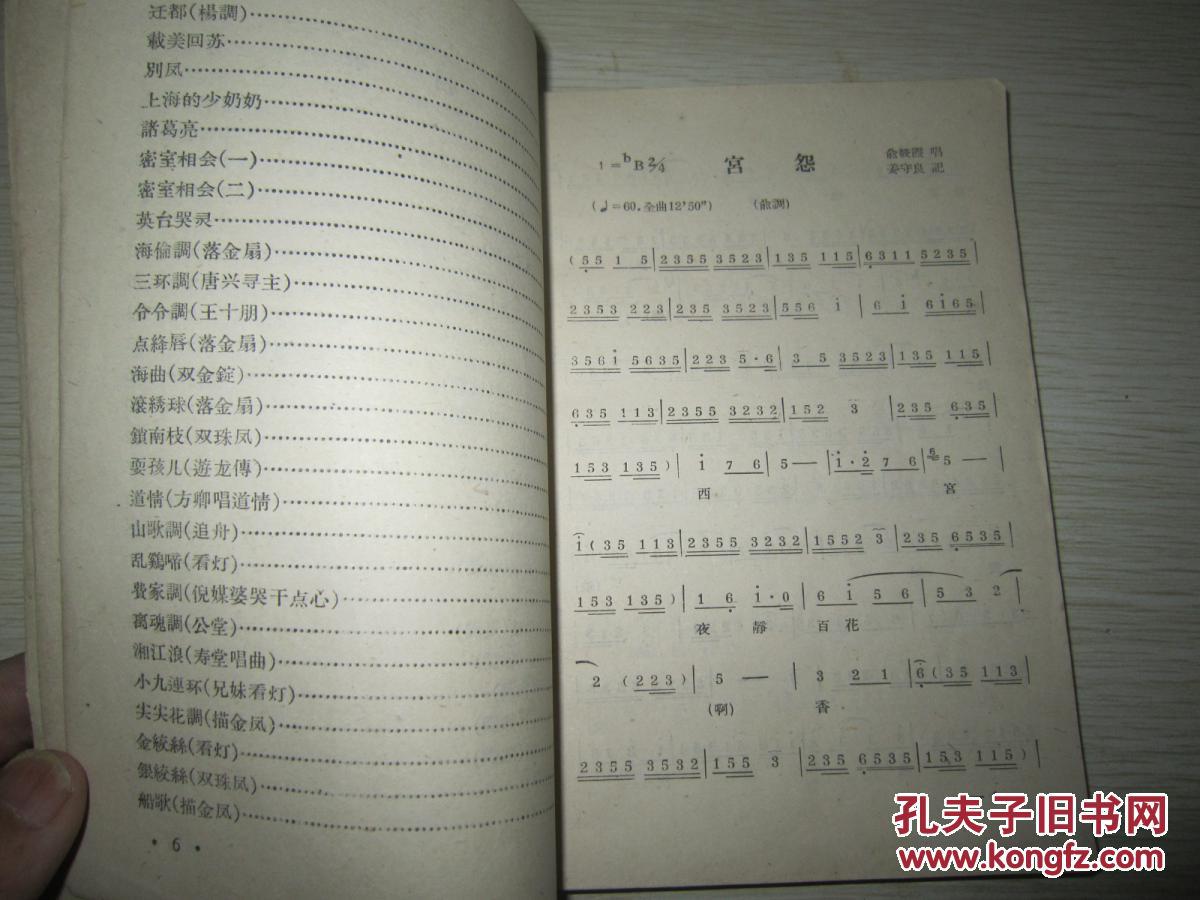 迁都(楊調)
載美回苏
別凤
上海的少奶奶
諸葛亮
密室相会(一)
密室相会(二)
英台哭灵
海倫調(落金扇)
三环調(唐兴寻主)
令令調(王十朋)
点絳唇(落金扇)
海曲(双金錠)
滾綉球(落金扇)
鎖南枝(双珠凤)
耍孩儿(遊龙傳)
道情(方卿唱道情)
山歌調(追舟)
乱鷄啼(看灯)
費家調(倪媒婆哭干点心)
离魂調(公堂)
湘江浪(寿堂唱曲)
小九連环(兄妹看灯)
尖尖花調(描金凤)
金絞絲(看灯)
銀絞絲(双珠凤)
船歌(描金凤)
• 6 •
1=bB 2/4 宮 怨 唱
姜守良 記
(♩=60.全曲12'50") (俞調)
(5 5 1 5|2355 3523|135 115|6311 5235|
2353 223|235 3523|556 i|6 i 6i65|
356i 5635|223 5·6|3 5 3523|135 115|
635 113|2355 3232|152 3|235 635|
153 135)|i 7 6|5 —|i·2 7 6|6 5 —|
西 宮
i(35 113|2355 3232|1552 3|235 6535|
153 135)|1 6 i·0|6 i 5 6|5 3 2|
夜 靜 百 花
2 (223)|5 —|3 2 1|6(35 113|
(啊) 香
2355 3532|155 3|235 6535|153 115)|
孔夫子旧书网
www.kongfz.com